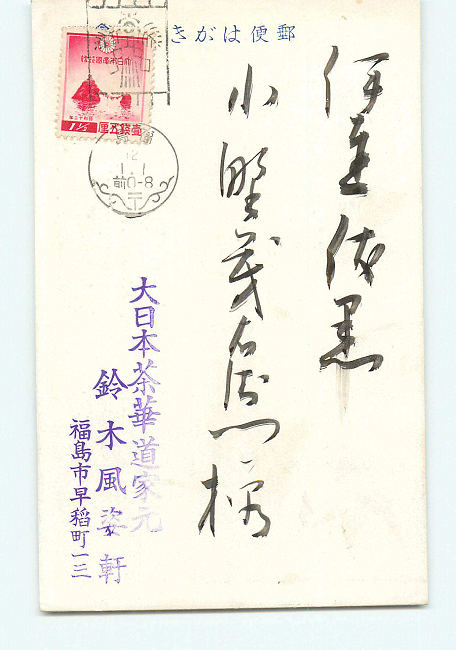 郵便はがき
大日本帝國郵便
壹錢五厘
1½
12
1.1
前0-8
伊達
小野茂右衛門様
大日本茶華道家元
鈴木風姿軒
福島市早稲町一三